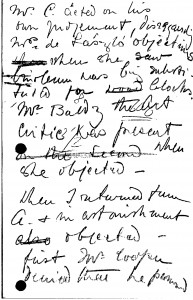 Mr. C. acted on his
own judgement, disregard
Mrs. de Laszlo objections
when she saw
linoleum was being substi-
tuted for
Mr. Baldry the Art
Critic was present
when
she objected –
When I returned from
A. & in astonishment
also objected –
first Mr. Cooper
denied that he person